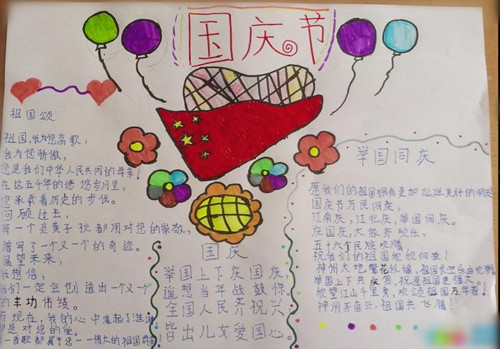 国庆节
祖国颂
祖国,我为您高歌,
我为您骄傲,
您是我们中华人民共同的母亲!
在这五千年的 岁月里,
您承载着历史的步伐。
回顾过去,
每一个炎黄子孙都用对您的
谱写了一个又一个的奇迹。
展望未来,
我想信,
我们一定会创造出一个又一个
的丰功伟绩。
现在,我的心中
是对您的爱。
国庆
举国上下庆国庆,
遥想当年战鼓惊。
全国人民齐祝兴
皆出儿女爱国心。
举国同庆
愿我们的祖国拥有更加灿烂美好的明天
国庆节万民同庆,
江南庆,江北庆,举国同庆。
庆国庆,大家齐欢乐,
五十六个民族欢腾
祝我们的祖国欣欣向荣!
神州大地繁花
举国上下共庆
神州齐奋六,祖国共飞腾!